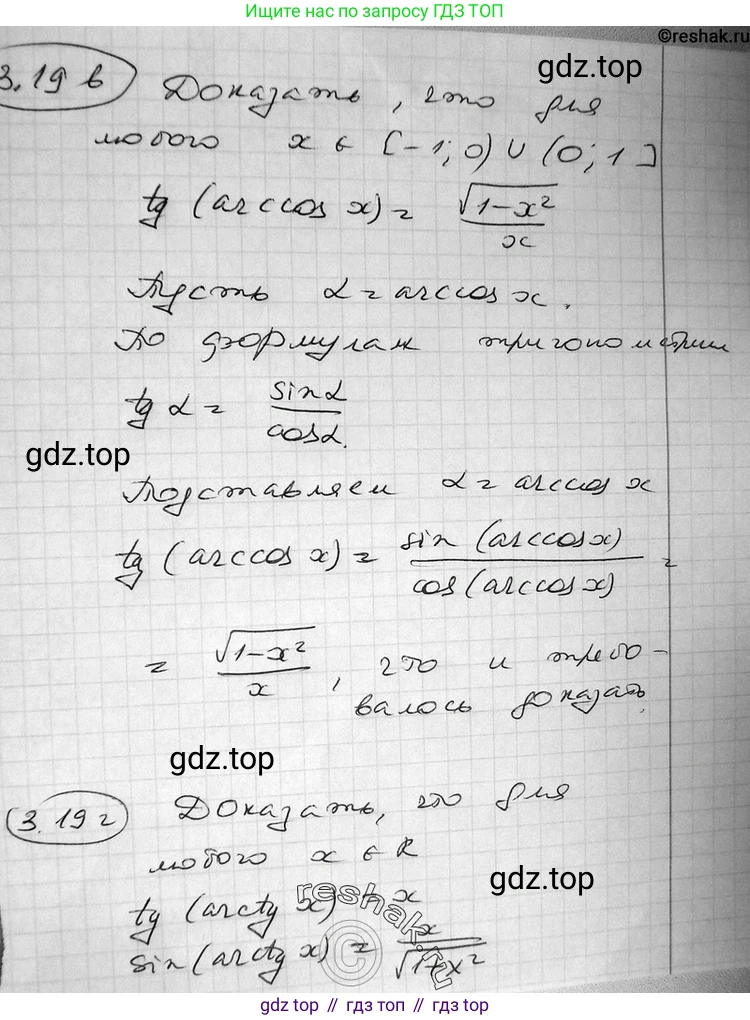 Ищите нас по запросу ГДЗ ТОП
©reshak.ru
3.19 в Доказать, что для
gdz.top
любого x ∈ [-1; 0) ∪ (0; 1]
tg (arccos x) = √(1-x²) / x
Пусть α = arccos x.
По формулам тригонометрии
tg α = sin α / cos α.
gdz.top
Подставляем α = arccos x
tg (arccos x) = sin (arccos x) / cos (arccos x) =
= √(1-x²) / x, что и требо-
валось доказать.
gdz.top
3.19 г Доказать, что для
любого x ∈ R
gdz.top
tg (arctg x) = x
reshak.ru
sin (arctg x) = x / √(1+x²)
©
gdz top // гдз топ // gdz top // гдз топ